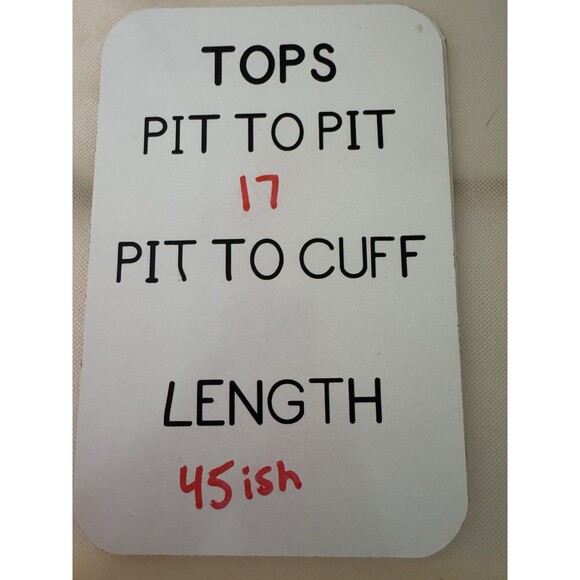 TOPS
PIT TO PIT
17
PIT TO CUFF
LENGTH
45ish